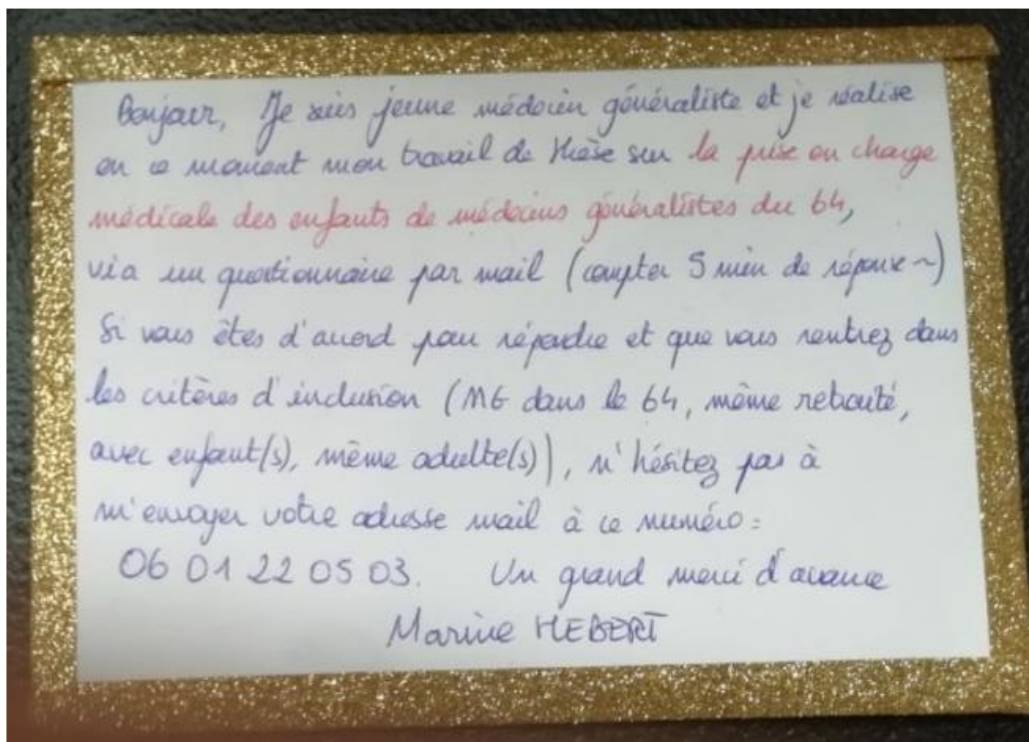 Bonjour, Je suis jeune médecin généraliste et je réalise
en ce moment mon travail de thèse sur la prise en charge
médicale des enfants de médecins généralistes du 64,
via un questionnaire par mail (compter 5 min de réponse ~)
Si vous êtes d'accord pour répondre et que vous rentrez dans
les critères d'inclusion (MG dans le 64, même retraité,
avec enfant(s), même adulte(s)), n'hésitez pas à
m'envoyer votre adresse mail à ce numéro :
06 01 22 05 03. Un grand merci d'avance
Marine HEBERT